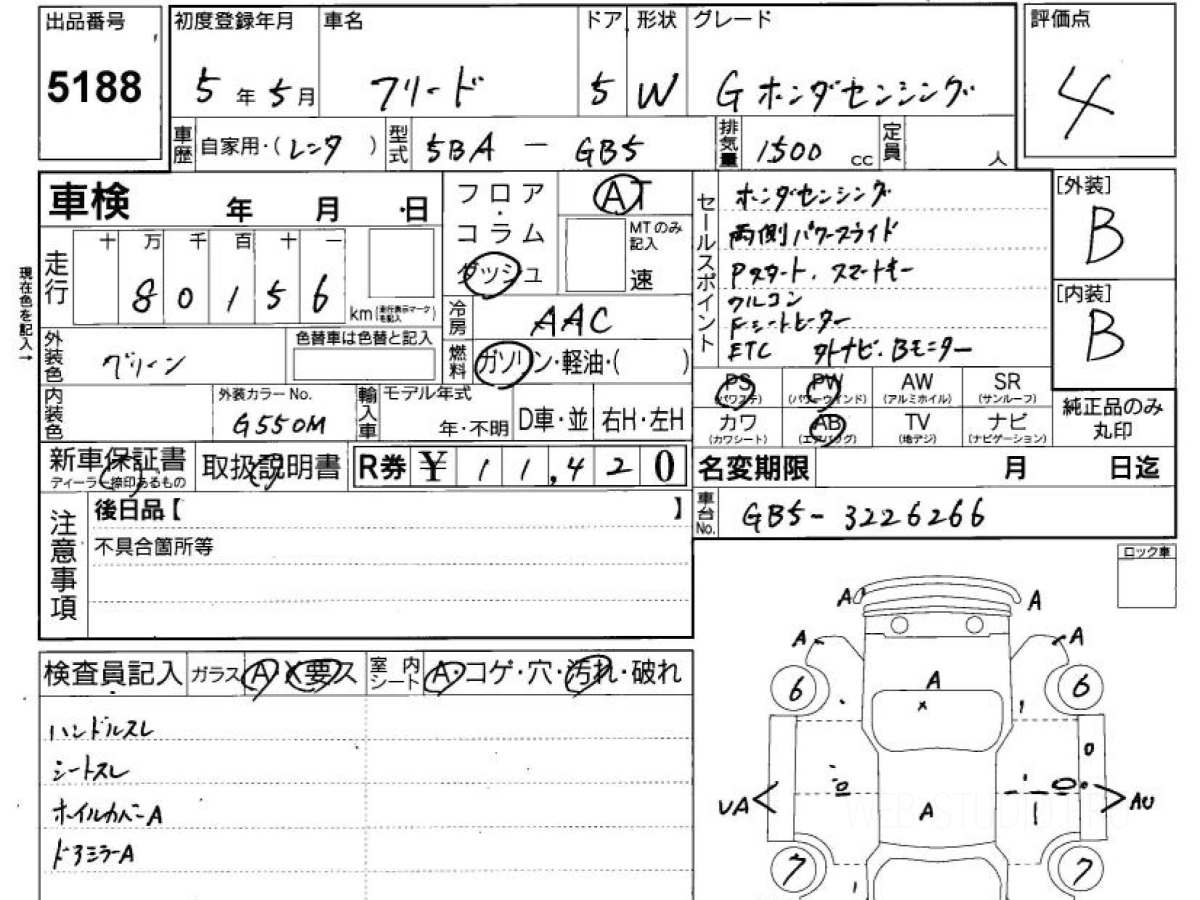 出品番号 初度登録年月 車名 ドア 形状 グレード 評価点
5188 5年5月 フリード 5 W Gホンダセンシング 4
車歴 自家用・(レンタ) 型式 5BA - GB5 排気量 1500 cc 定員 人
車検 年 月 日
フロア・コラム ダッシュ AT
MTのみ記入 速
セールスポイント
ホンダセンシング
両側パワースライド
Pスタート.スマートキー
クルコン
Fシートヒーター
ETC 外ナビ.Bモニター
[外装]
B
[内装]
B
現在色を記入→
走行 十 万 千 百 十 一
80156 km (走行表示マークを記入)
冷房 AAC
外装色 グリーン 色替車は色替と記入
燃料 ガソリン・軽油・( )
内装色 外装カラーNo. G550M 輸入車 モデル年式 年・不明 D車・並 右H・左H
PS (パワステ) PW (パワーウインド) AW (アルミホイル) SR (サンルーフ)
カワ (カワシート) AB (エアバッグ) TV (地デジ) ナビ (ナビゲーション)
純正品のみ
丸印
新車保証書 ディーラー捺印あるもの 取扱説明書 R券 ¥ 11,420
名変期限 月 日迄
車台No. GB5-3226266
注意事項
後日品【 】
不具合箇所等
ロック車
検査員記入 ガラス A・X要ス 室内シート A・コゲ・穴・汚れ・破れ
ハンドルスレ
シートスレ
ホイルカバーA
ドアミラーA
A A
A A
6 A 6
x
UA A AU
7 7